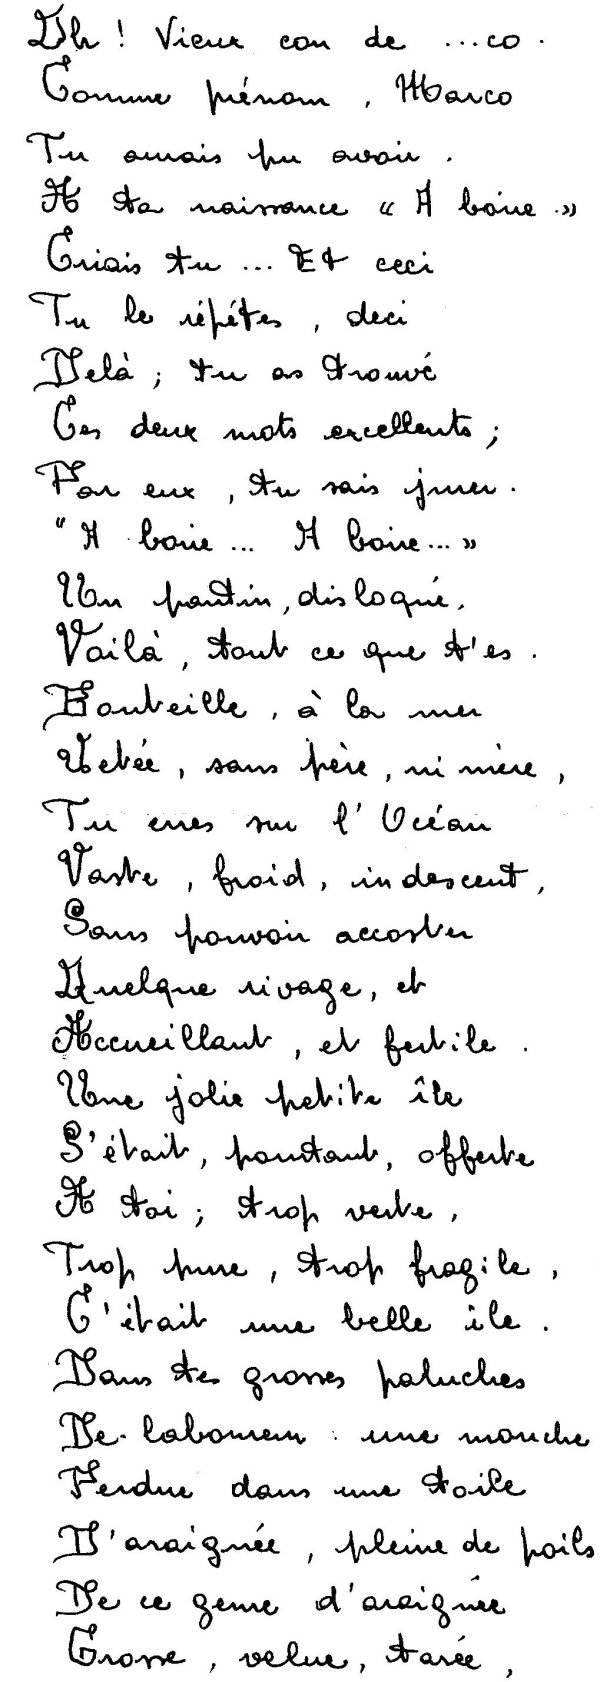 Oh ! Vieux con de ...co.
Comme prénom, Marco
Tu aurais pu avoir.
A ta naissance « A boire »
Criais tu ... Et ceci
Tu le répétes, deci
Delà ; tu as trouvé
Ces deux mots excellents ;
Par eux, tu sais jurer.
"A boire ... A boire ... »
Un pantin, disloqué,
Voilà, tout ce que t'es.
Bouteille, à la mer
Jetée, sans père, ni mère,
Tu erres sur l'Océan
Vaste, froid, indescent,
Sans pouvoir accoster
Quelque rivage, et
Accueillant, et fertile.
Une jolie petite île
S'était, pourtant, offerte
A toi ; trop verte,
Trop pure, trop fragile,
C'était une belle île.
Dans tes grosses paluches
De laboureur : une mouche
Perdue dans une toile
D'araignée, pleine de poils
De ce genre d'araignée
Grosse, velue, tarée,